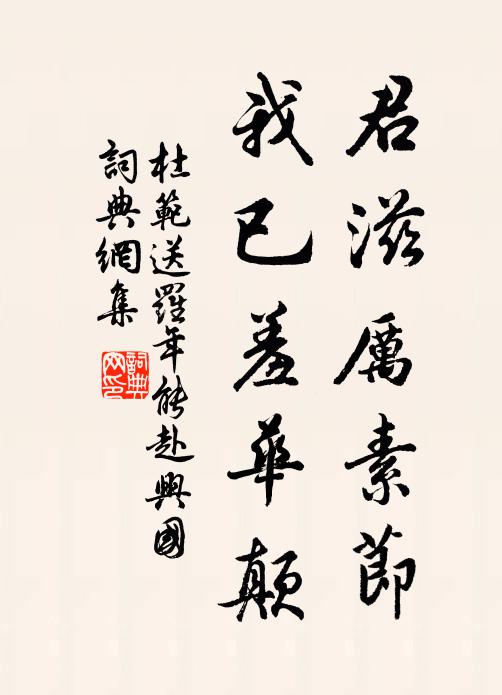 君滋厲素節
我已羞華顛
杜範送羅年能赴興國
詞典網集
詞典网印